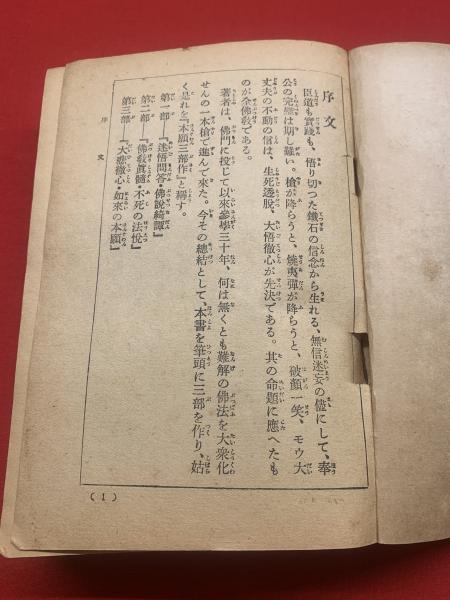 序文
臣道も實踐も、悟り切つた鐵石の信念から生れる、無信迷妄の儘にして、奉
公の完璧は期し難い。槍が降らうと、燒夷彈が降らうと、破顏一笑、モウ大
丈夫の不動の信は、生死透脫、大悟徹心が先決である。其の命題に應へたも
のが全佛敎である。
著者は、佛門に投じて以來參學三十年、何は無くとも難解の佛法を大衆化
せんの一本槍で進んで來た。今その總結として、本書を筆頭に三部を作り、姑
く是れを『本願三部作』と稱す。
第一部 『迷悟問答・佛說綺譚』
第二部 『佛敎眞髓・不死の法悅』
第三部 『大悟徹心・如來の本願』
序文
(1)